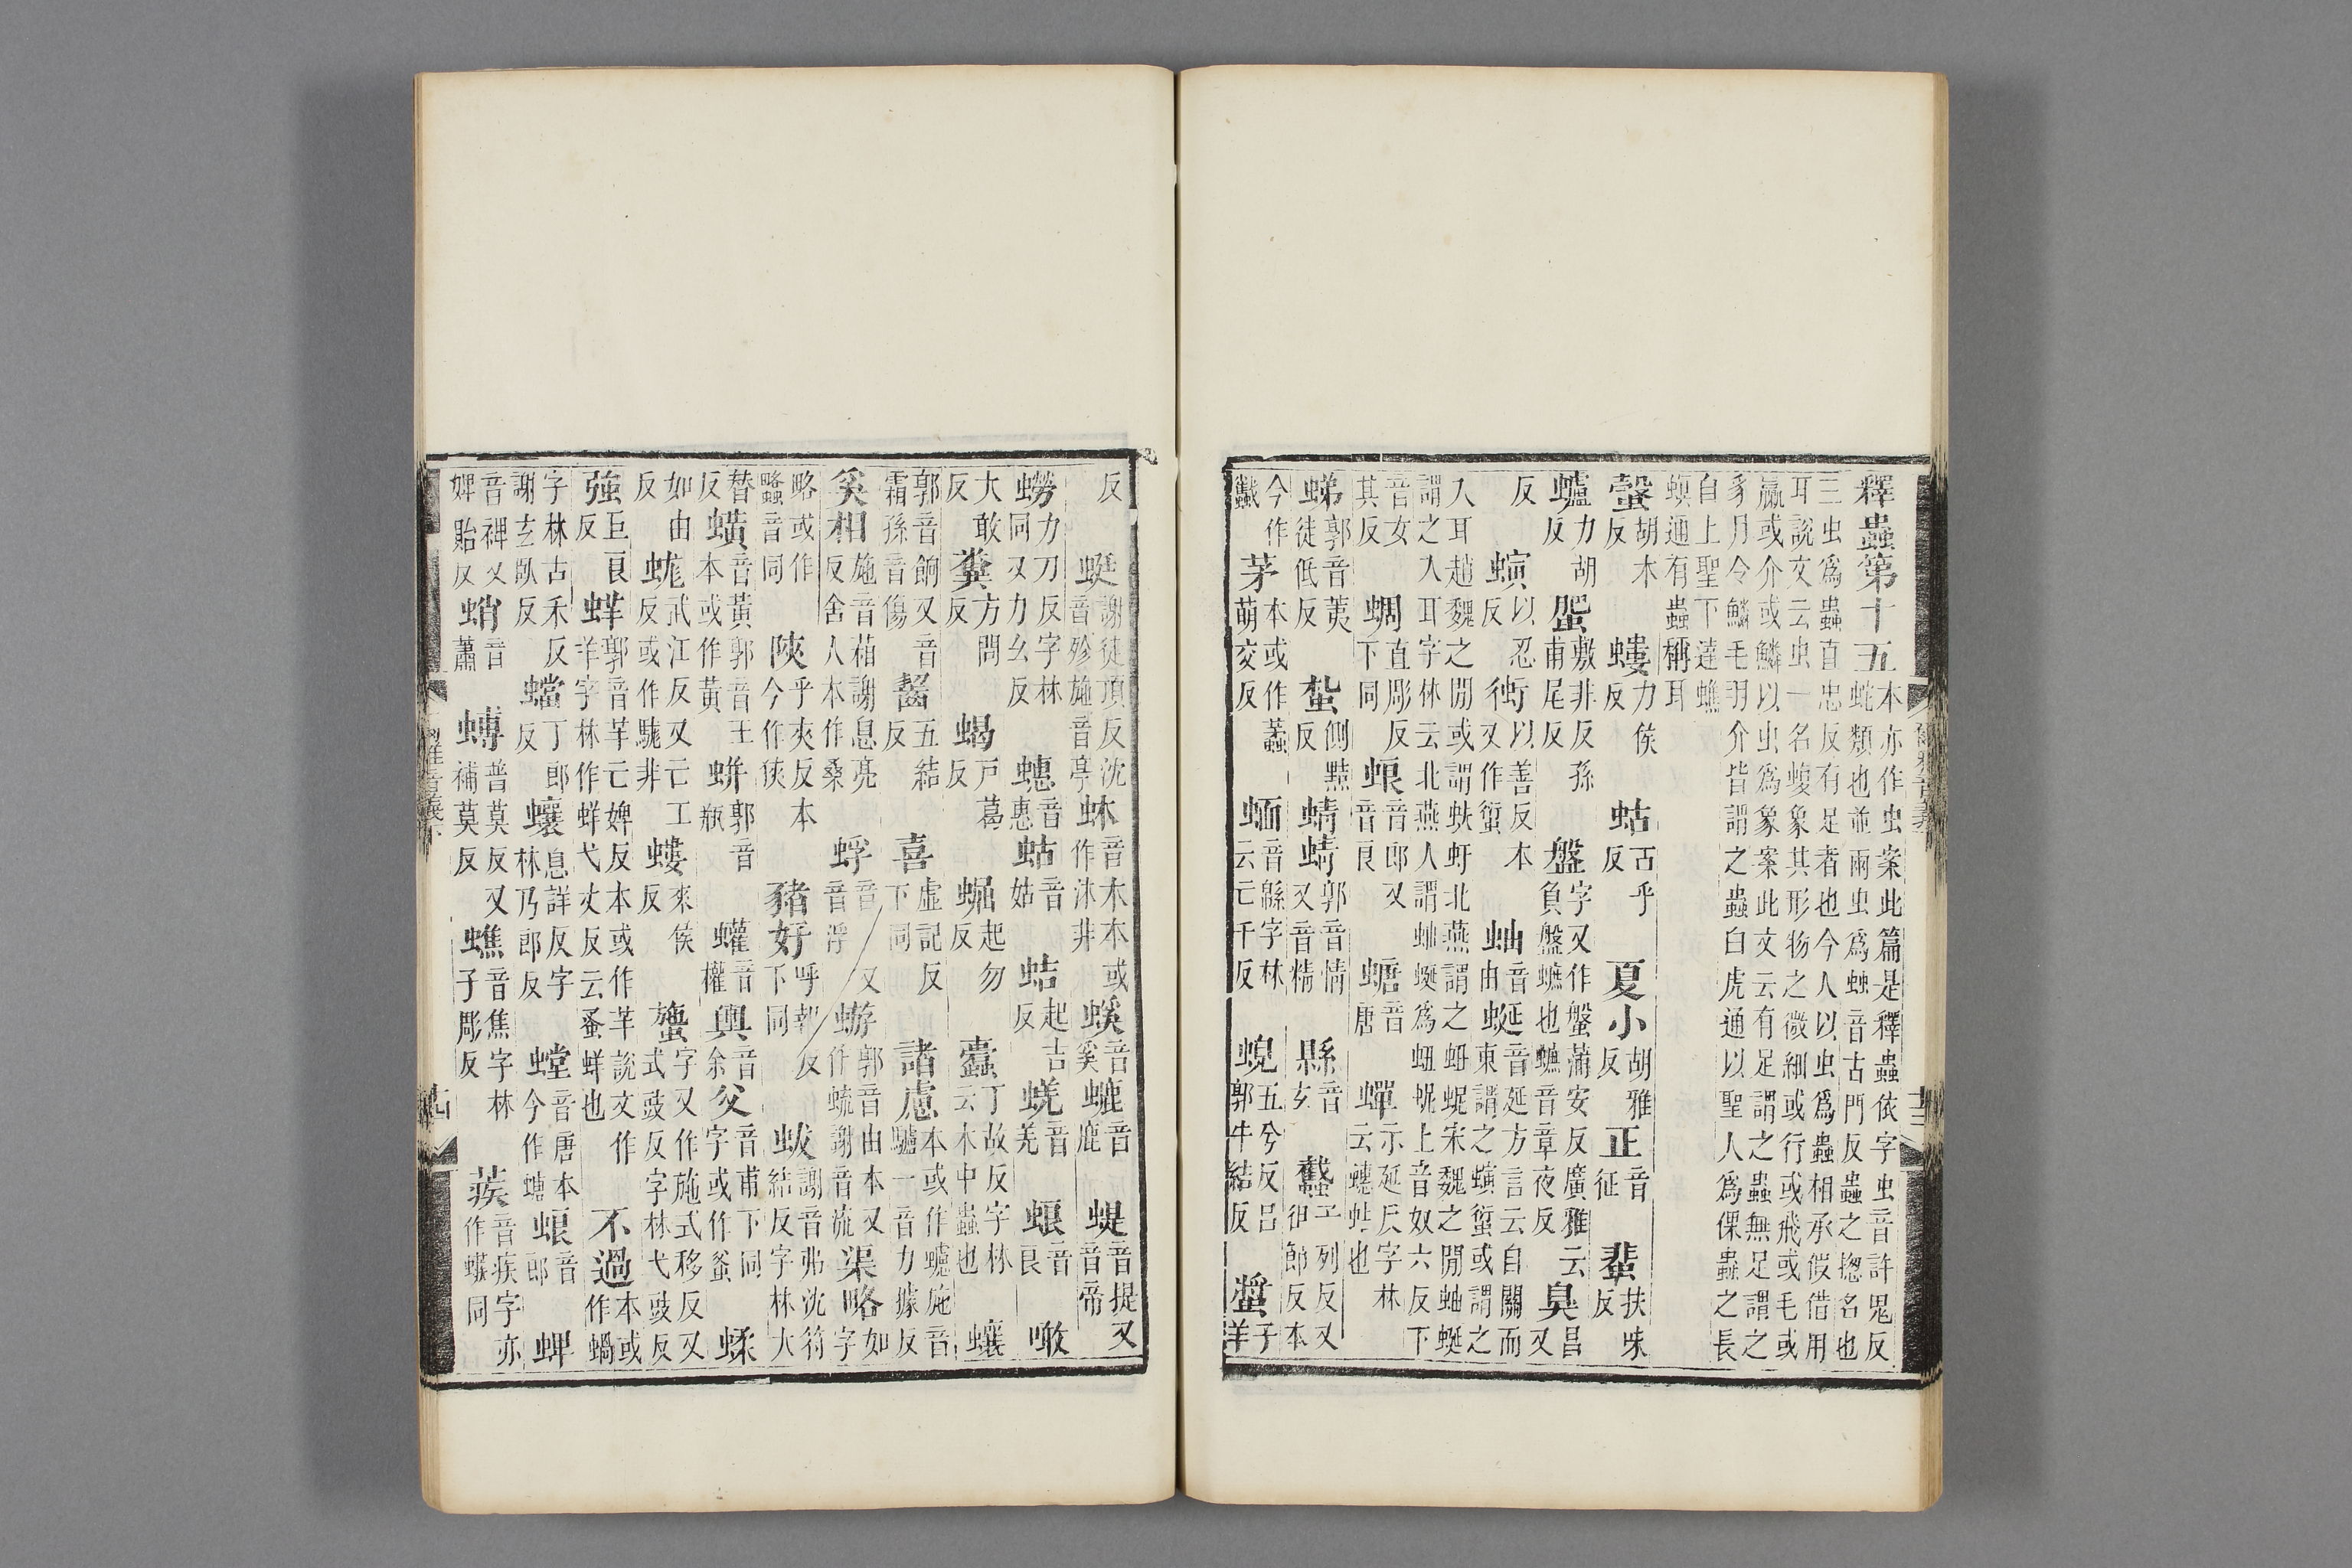 釋蟲第十五本亦作虫案此篇是釋蟲依字虫音許鬼反蛇類也並兩虫爲䖵音古門反蟲之揔名也
三虫爲蟲直忠反有足者也今人以虫爲蟲相承假借用耳說文云虫一名蝮象其形物之微細或行或飛或毛或
蠃或介或鱗以虫爲象案此文云有足謂之蟲無足謂之豸月令鱗毛羽介皆謂之蟲白虎通以聖人爲倮蟲之長
自上聖下達蟭螟通有蟲稱耳
螜胡木反螻力侯反蛄古乎反夏小胡雅反正音征蜚扶味反
蠦力胡反蜰敷非反孫甫尾反盤字又作螌蒲安反廣雅云負盤蟅也蟅音章夜反臭昌又
反螾以忍反衙以善反本又作蜸蚰音由蜒音延方言云自關而東謂之螾蜸或謂之
入耳趙魏之閒或謂蚨虶北燕謂之蛆蚭宋魏之閒蚰蜒謂之入耳字林云北燕人謂蚰蜒爲蚭蚭上音奴六反下
音女其反蜩直彫反下同蜋音郎又音良螗音唐蟬示延反字林云蟪蛄也
蛦郭音荑徒低反蚻側黠反蜻蜻郭音情又音精縣音玄蠽子列反又徂節反本
今作蠿茅本或作蟊萌交反蝒音緜字林云亡千反蜺五兮反呂郭牛結反螿子羊
反蜓謝徒頂反沈音殄施音亭蚞音木本或作沐非螇音奚螰音鹿蝭音提又音帝
蟧力刀反字林同又力幺反蟪音惠蛄音姑蛣起吉反蜣音羌蜋音良噉
大敢反糞方問反蝎戶葛反𧌑起勿反蠹丁故反字林云木中蟲也蠰
郭音餉又音霜孫音傷齧五結反喜虛記反下同諸慮本或作蠦施音䗔一音力據反
奚相施音葙謝息亮反舍人本作桑蜉音浮蝣郭音由本又作蝣謝音流渠略如字
略或作䗉音同陝乎夾反本今作狹豬好呼報反下同蛂謝音弗沈符結反字林大
替反蟥音黃郭音王本或作黃蛢郭音瓶蠸音權輿音余父音甫下同字或作蚥蝚
如由反蛖武江反又亡工反或作駹非螻來侯反䗐字又作施式移反又式豉反字林弋豉反
強巨良反蛘郭音羋亡婢反本或作羋說文作羊字林作蛘弋丈反云蚤蛘也不過本或作蝸
字林古禾反謝玄臥反蟷丁郎反蠰息詳反字林乃郎反螳音唐本今作螗蜋音郎蜱
音裨又婢貽反蛸音蕭䗚普莫反又補莫反蟭音焦字林子彫反蒺音疾字亦作螏同